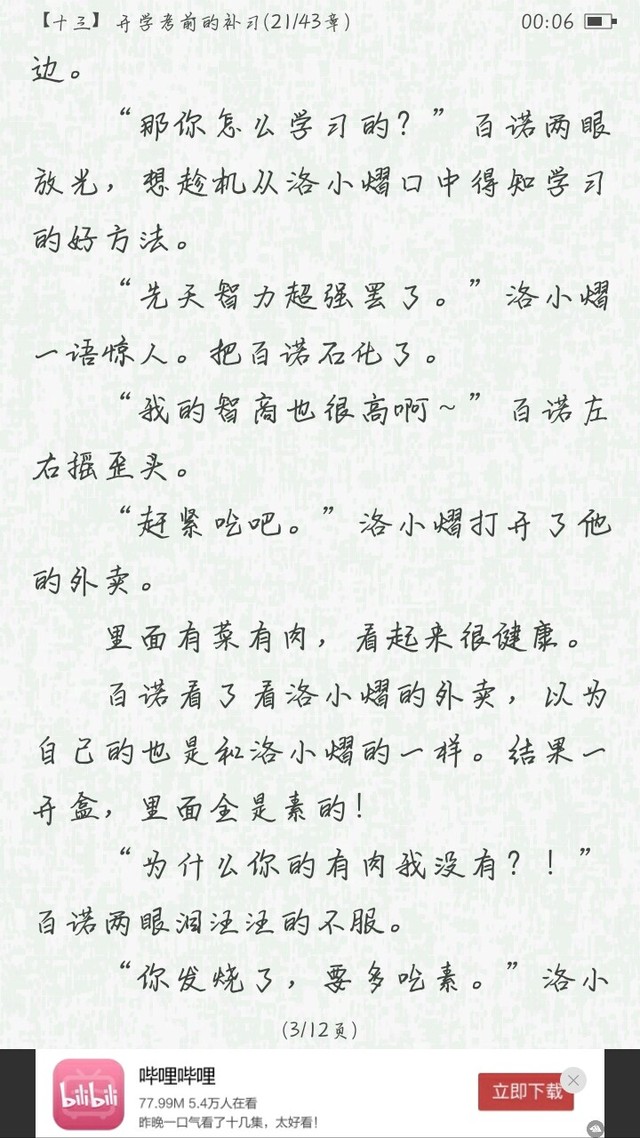 【十三】 开学考前的补习(21/43章)
00:06
边。
“那你怎么学习的？”百诺两眼
放光，想趁机从洛小熠口中得知学习
的好方法。
“先天智力超强罢了。”洛小熠
一语惊人。把百诺石化了。
“我的智商也很高啊～”百诺左
右摇歪头。
“赶紧吃吧。”洛小熠打开了他
的外卖。
里面有菜有肉，看起来很健康。
百诺看了看洛小熠的外卖，以为
自己的也是和洛小熠的一样。结果一
开盒，里面全是素的！
“为什么你的有肉我没有？！”
百诺两眼泪汪汪的不服。
“你发烧了，要多吃素。”洛小
(3/12页)
bilibili
哔哩哔哩
77.99M 5.4万人在看
昨晚一口气看了十几集，太好看！
立即下载